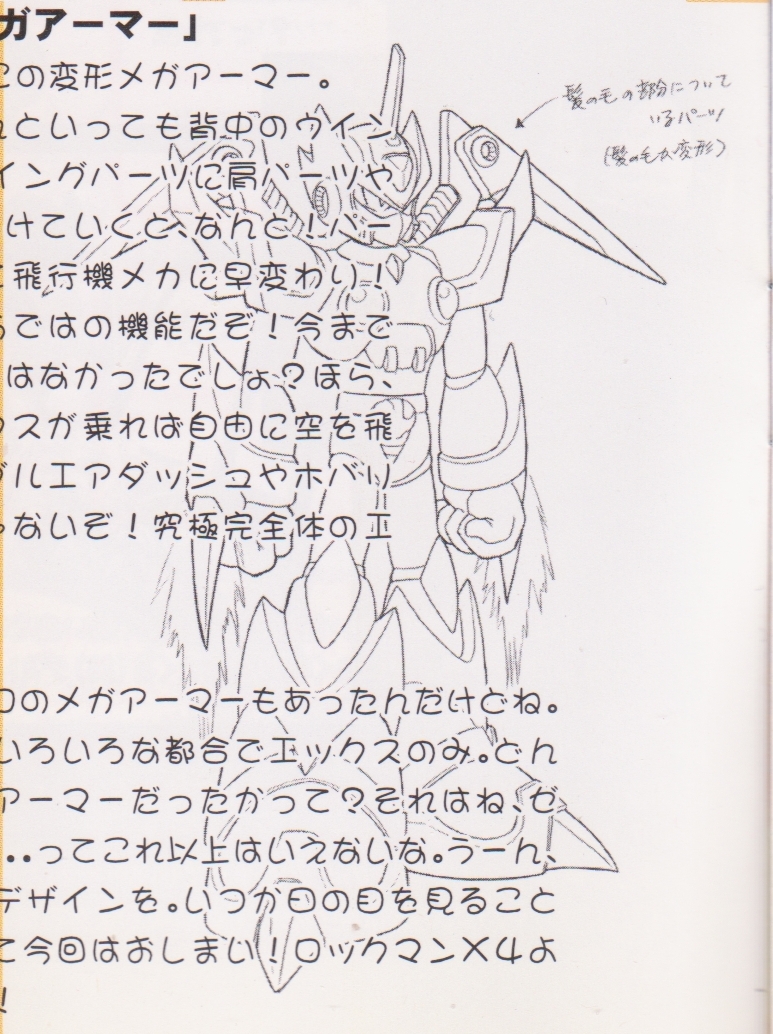 ガアーマー」
この変形メガアーマー。
といっても背中のウイン
イングパーツに肩パーツや
けていくと、なんと!パー
に飛行機メカに早変わり!
ではの機能だぞ!今まで
はなかったでしょ?ほら、
クスが乗れば自由に空を飛
ブルエアダッシュやホバリ
ゃないぞ!究極完全体のエ
髪の毛の部分について
いるパーツ
(髪の毛が変形)
ロのメガアーマーもあったんだけどね。
いろいろな都合でエックスのみ。どん
アーマーだったかって?それはね、ゼ
‥ってこれ以上はいえないな。うーん、
デザインを。いつか日の目を見ること
て今回はおしまい!ロックマンX4よ
!